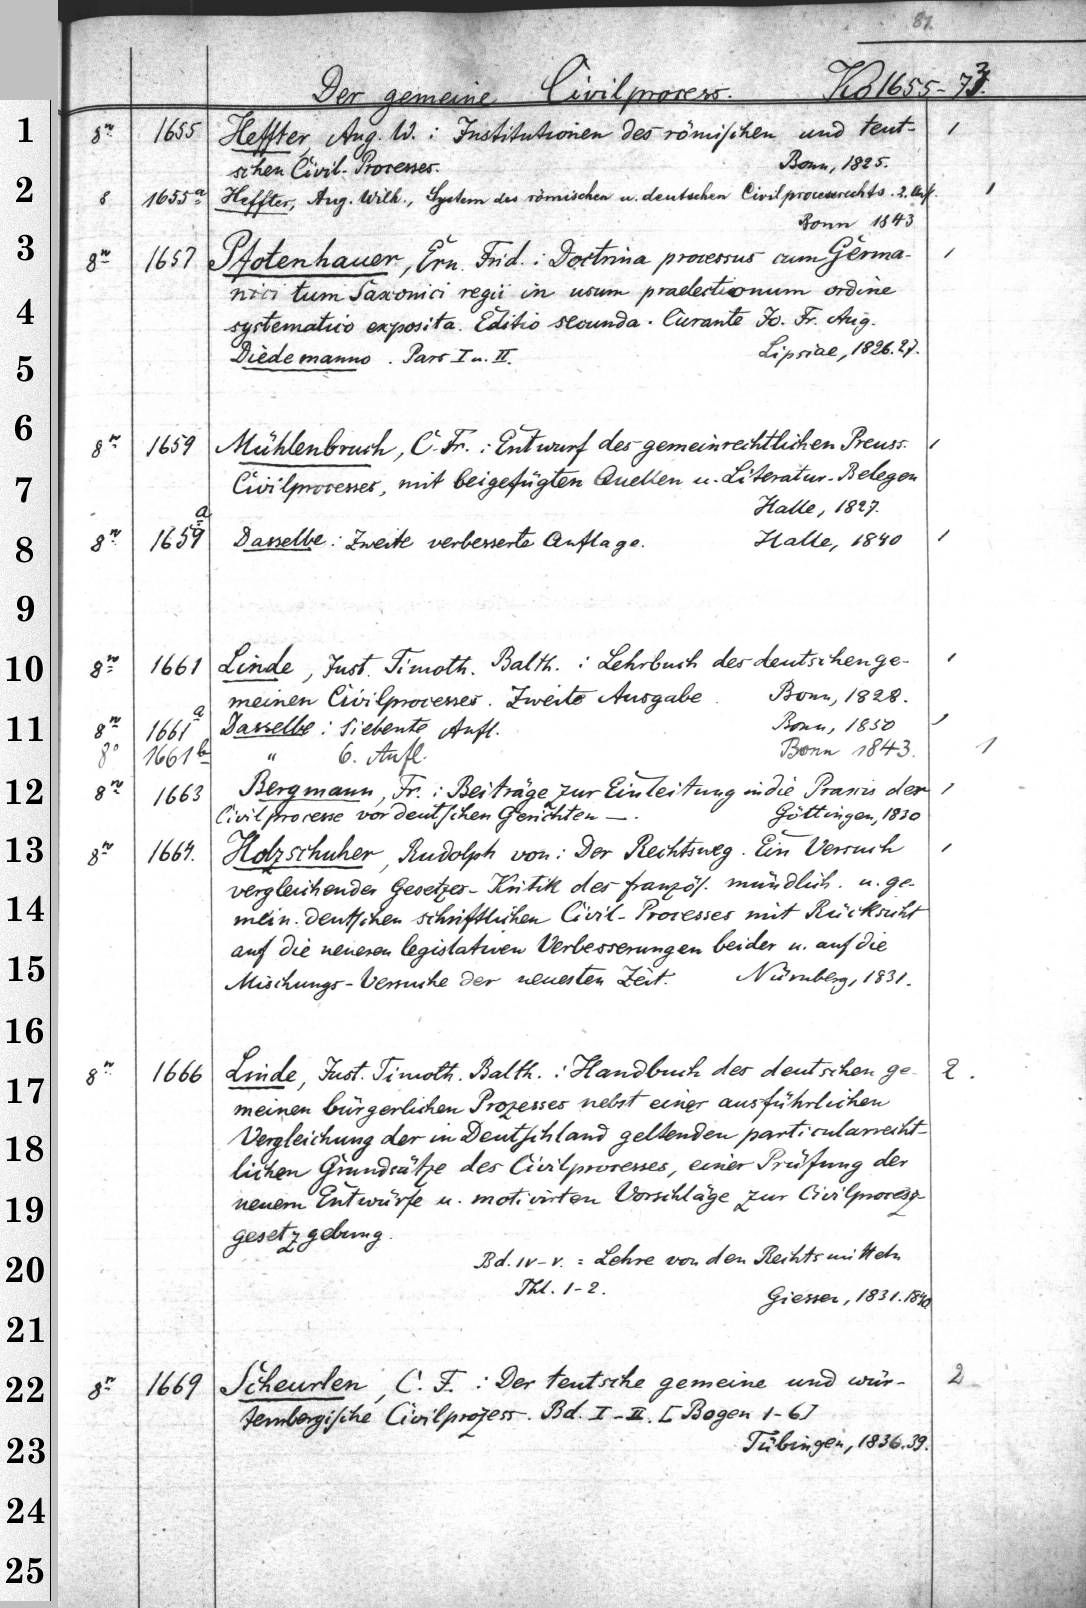 81.
Der gemeine Civilprocess. Ko 1655-73.
1 8º 1655 Heffter, Aug. W. : Institutionen des römischen und teut- 1
schen Civil-Processes. Bonn, 1825.
2 8 1655a Heffter, Aug. Wilh., System des römischen u. deutschen Civilprocessrechts. 2. Aufl. 1
Bonn 1843
3 8º 1657 Pfotenhauer, Ern. Frid. : Doctrina processus cum Germa- 1
nici tum Saxonici regii in usum praelectionum ordine
4 systematico exposita. Editio secunda. Curante Fr. Aug.
5 Diedemanno. Pars I u. II. Lipsiae, 1826.27.
6 8º 1659 Mühlenbruch, C. Fr. : Entwurf des gemeinrechtlichen Preuss. 1
7 Civilprocesses, mit beigefügten Quellen u. Literatur-Belegen
Halle, 1827.
8 8º 1659a Dasselbe : Zweite verbesserte Auflage. Halle, 1840 1
9
10 8º 1661 Linde, Just. Timoth. Balth. : Lehrbuch des deutschen ge- 1
meinen Civilprocesses. Zweite Ausgabe. Bonn, 1828.
11 8º 1661a Dasselbe : Siebente Aufl. Bonn, 1850 1
8º 1661b " 6. Aufl. Bonn 1843. 1
12 8º 1663 Bergmann, Fr. : Beiträge zur Einleitung in die Praxis der 1
Civilprocesse vor deutschen Gerichten —. Göttingen, 1830
13 8º 1664. Holzschuher, Rudolph von : Der Rechtsweg. Ein Versuch 1
vergleichender Gesetzes-Kritik des französ. mündlich. u. ge-
14 mein. deutschen schriftlichen Civil-Processes mit Rücksicht
auf die neueren legislativen Verbesserungen beider u. auf die
15 Mischungs-Versuche der neuesten Zeit. Nürnberg, 1831.
16
17 8º 1666 Linde, Just. Timoth. Balth. : Handbuch des deutschen ge- 2.
meinen bürgerlichen Prozesses nebst einer ausführlichen
18 Vergleichung der in Deutschland geltenden particularrecht-
lichen Grundsätze des Civilprocesses, einer Prüfung der
19 neuern Entwürfe u. motivirten Vorschläge zur Civilprocess-
gesetzgebung.
20 Bd. IV-V. = Lehre von den Rechtsmitteln
Thl. 1-2. Giessen, 1831.1840
21
22 8º 1669 Scheurlen, C. F. : Der teutsche gemeine und wür- 2
tembergische Civilprozess. Bd. I-II. [Bogen 1-6]
23 Tübingen, 1836.39.
24
25